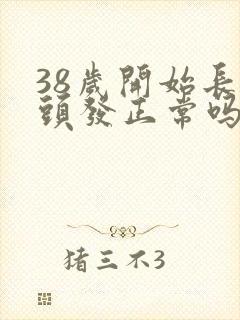 38歲開始長
頭發正常嗎
猪三不3